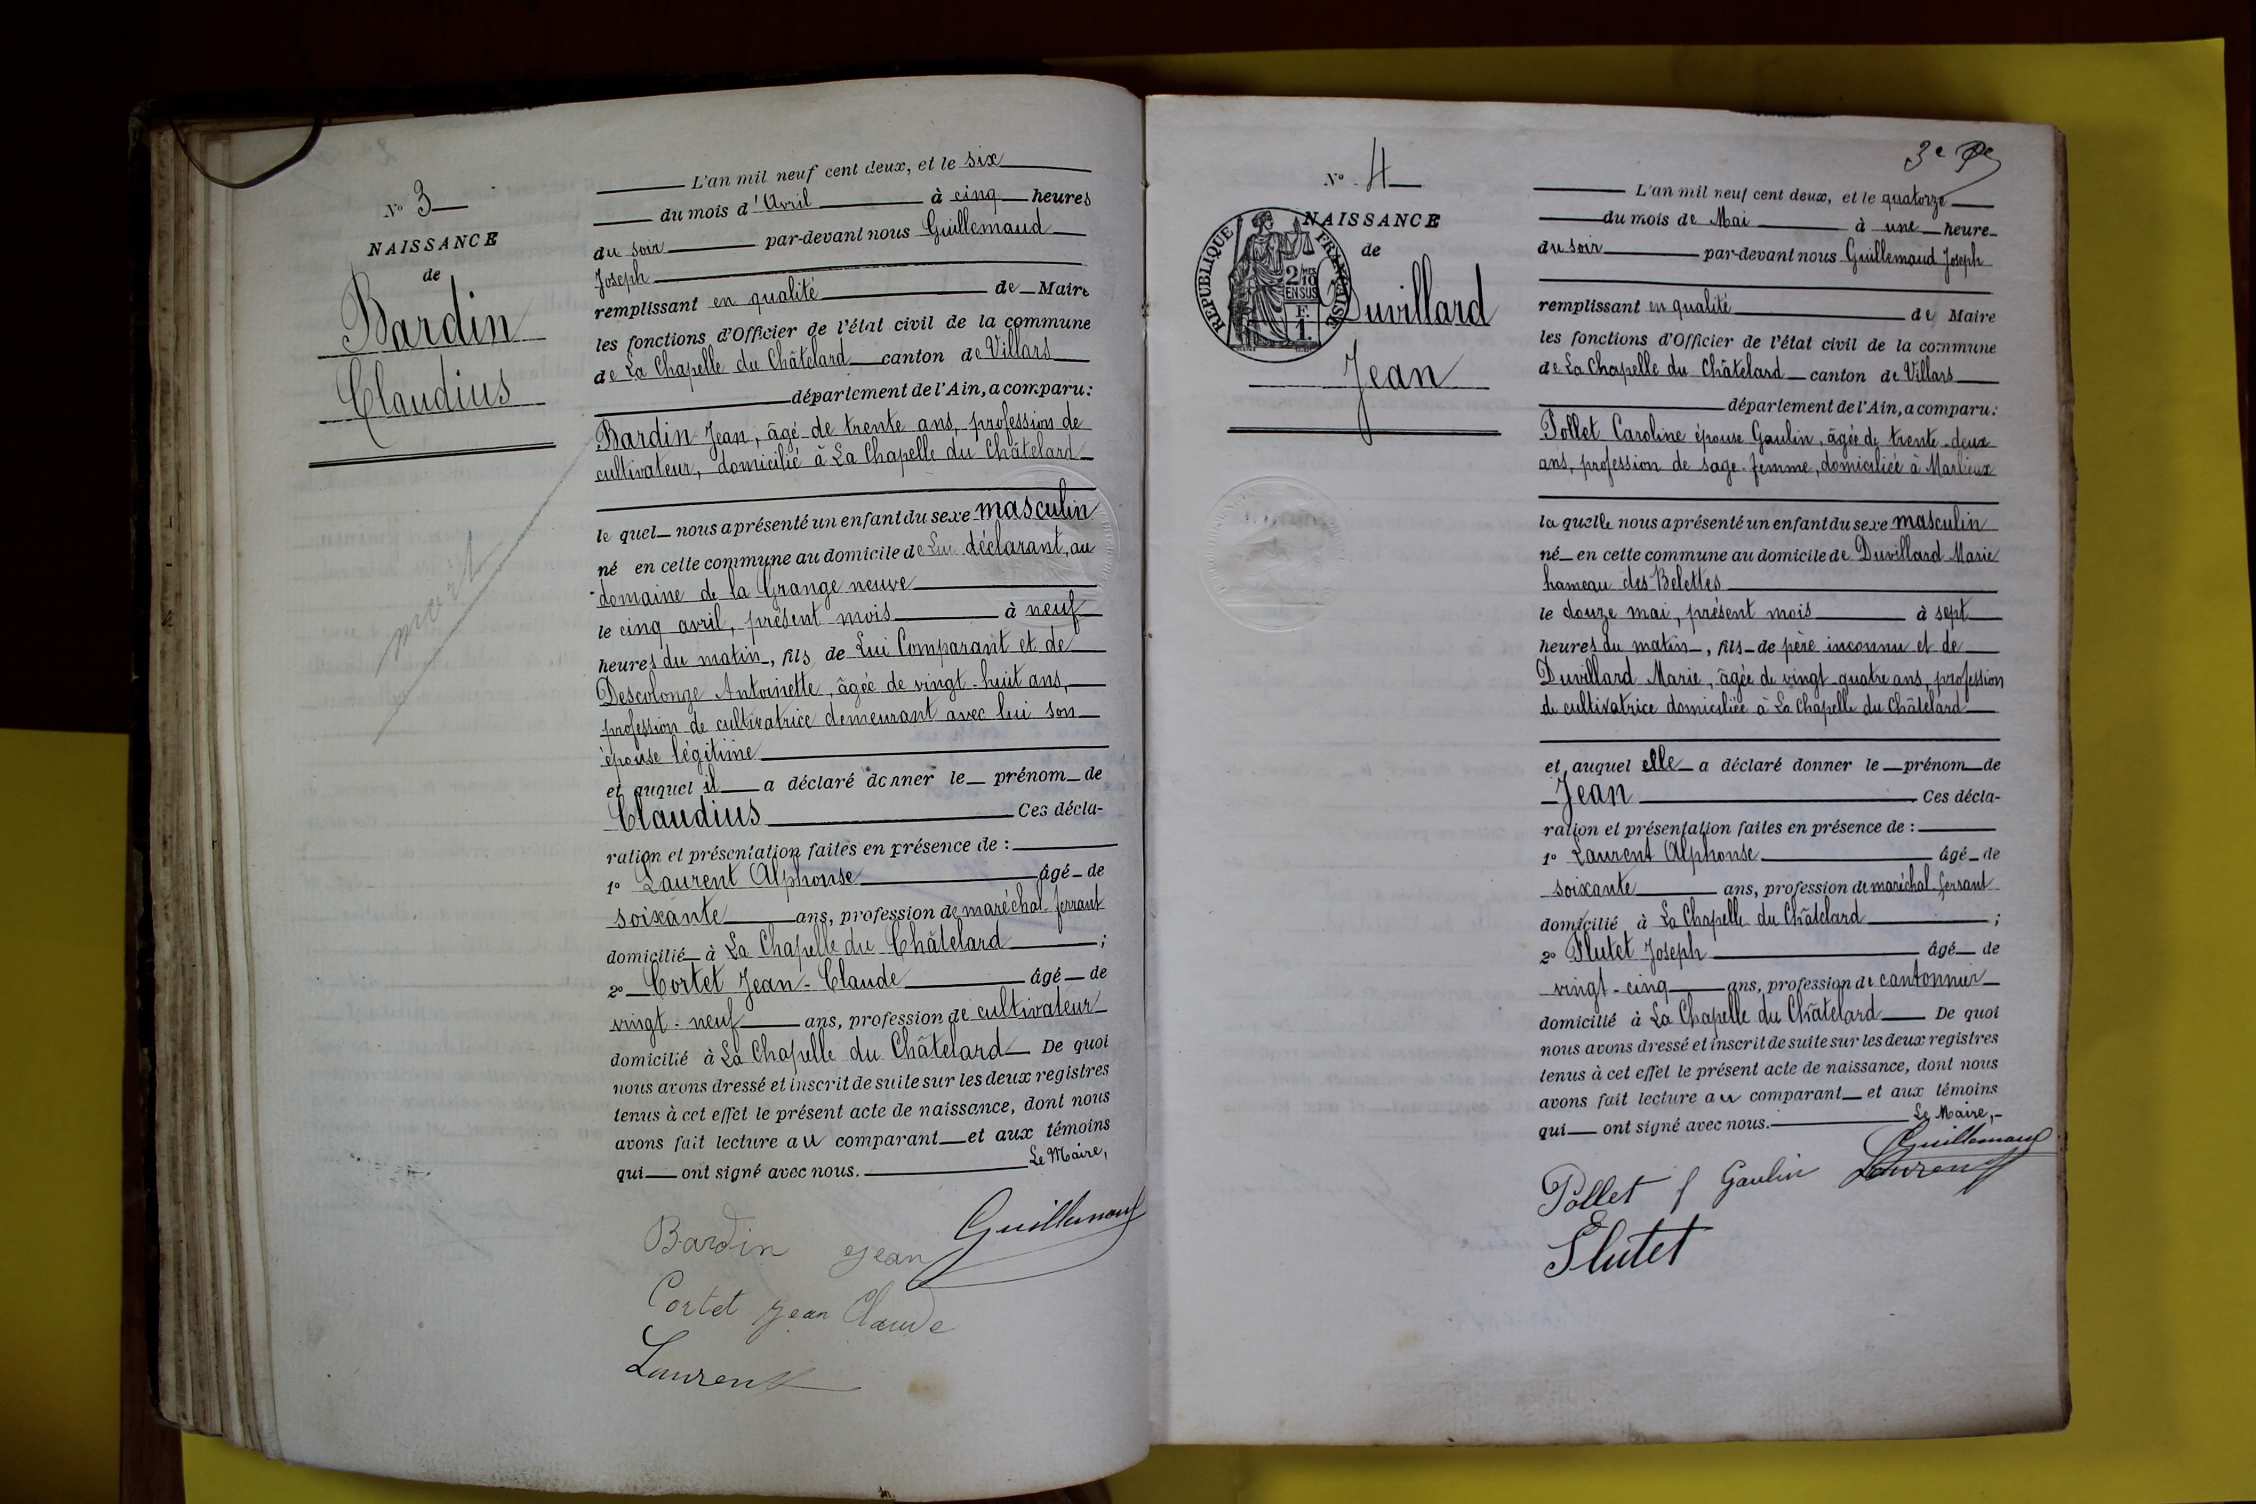 N° 3
NAISSANCE
de
Bardin
Claudius
mort
L'an mil neuf cent deux, et le six
du mois d'Avril à cinq heures
du soir par-devant nous Guillemaud
Joseph
remplissant en qualité de Maire
les fonctions d'Officier de l'état civil de la commune
de La Chapelle du Châtelard canton de Villars
département de l'Ain, a comparu:
Bardin Jean, âgé de trente ans, profession de
cultivateur, domicilié à La Chapelle du Châtelard
le quel nous a présenté un enfant du sexe masculin
né en cette commune au domicile de Lui déclarant, au
domaine de la Grange neuve
le cinq avril, présent mois à neuf
heures du matin, fils de Lui Comparant et de
Descolonge Antoinette, âgée de vingt-huit ans,
profession de cultivatrice demeurant avec lui son
épouse légitime
et auquel il a déclaré donner le prénom de
Claudius Ces décla-
ration et présentation faites en présence de :
1° Laurent Alphonse âgé de
soixante ans, profession de maréchal-ferrant
domicilié à La Chapelle du Châtelard ;
2° Cortet Jean-Claude âgé de
vingt-neuf ans, profession de cultivateur
domicilié à La Chapelle du Châtelard De quoi
nous avons dressé et inscrit de suite sur les deux registres
tenus à cet effet le présent acte de naissance, dont nous
avons fait lecture au comparant et aux témoins
qui ont signé avec nous. Le Maire,
Bardin Jean Guillemaud
Cortet Jean Claude
Laurent
3e
N° 4
NAISSANCE
de
Duvillard
Jean
REPUBLIQUE FRANÇAISE
2/10
EN SUS
F.
1.
L'an mil neuf cent deux, et le quatorze
du mois de Mai à une heure
du soir par-devant nous Guillemaud Joseph
remplissant en qualité de Maire
les fonctions d'Officier de l'état civil de la commune
de La Chapelle du Châtelard canton de Villars
département de l'Ain, a comparu:
Pollet Caroline épouse Gaulin, âgée de trente-deux
ans, profession de sage-femme, domiciliée à Marlieux
la quelle nous a présenté un enfant du sexe masculin
né en cette commune au domicile de Duvillard Marie
hameau des Belettes
le douze mai, présent mois à sept
heures du matin, fils de père inconnu et de
Duvillard Marie, âgée de vingt-quatre ans, profession
de cultivatrice domiciliée à La Chapelle du Châtelard
et auquel elle a déclaré donner le prénom de
Jean Ces décla-
ration et présentation faites en présence de :
1° Laurent Alphonse âgé de
soixante ans, profession de maréchal-ferrant
domicilié à La Chapelle du Châtelard ;
2° Flutet Joseph âgé de
vingt-cinq ans, profession de cantonnier
domicilié à La Chapelle du Châtelard De quoi
nous avons dressé et inscrit de suite sur les deux registres
tenus à cet effet le présent acte de naissance, dont nous
avons fait lecture au comparant et aux témoins
qui ont signé avec nous. Le Maire,
Guillemaud
Pollet f Gaulin Laurent
Flutet